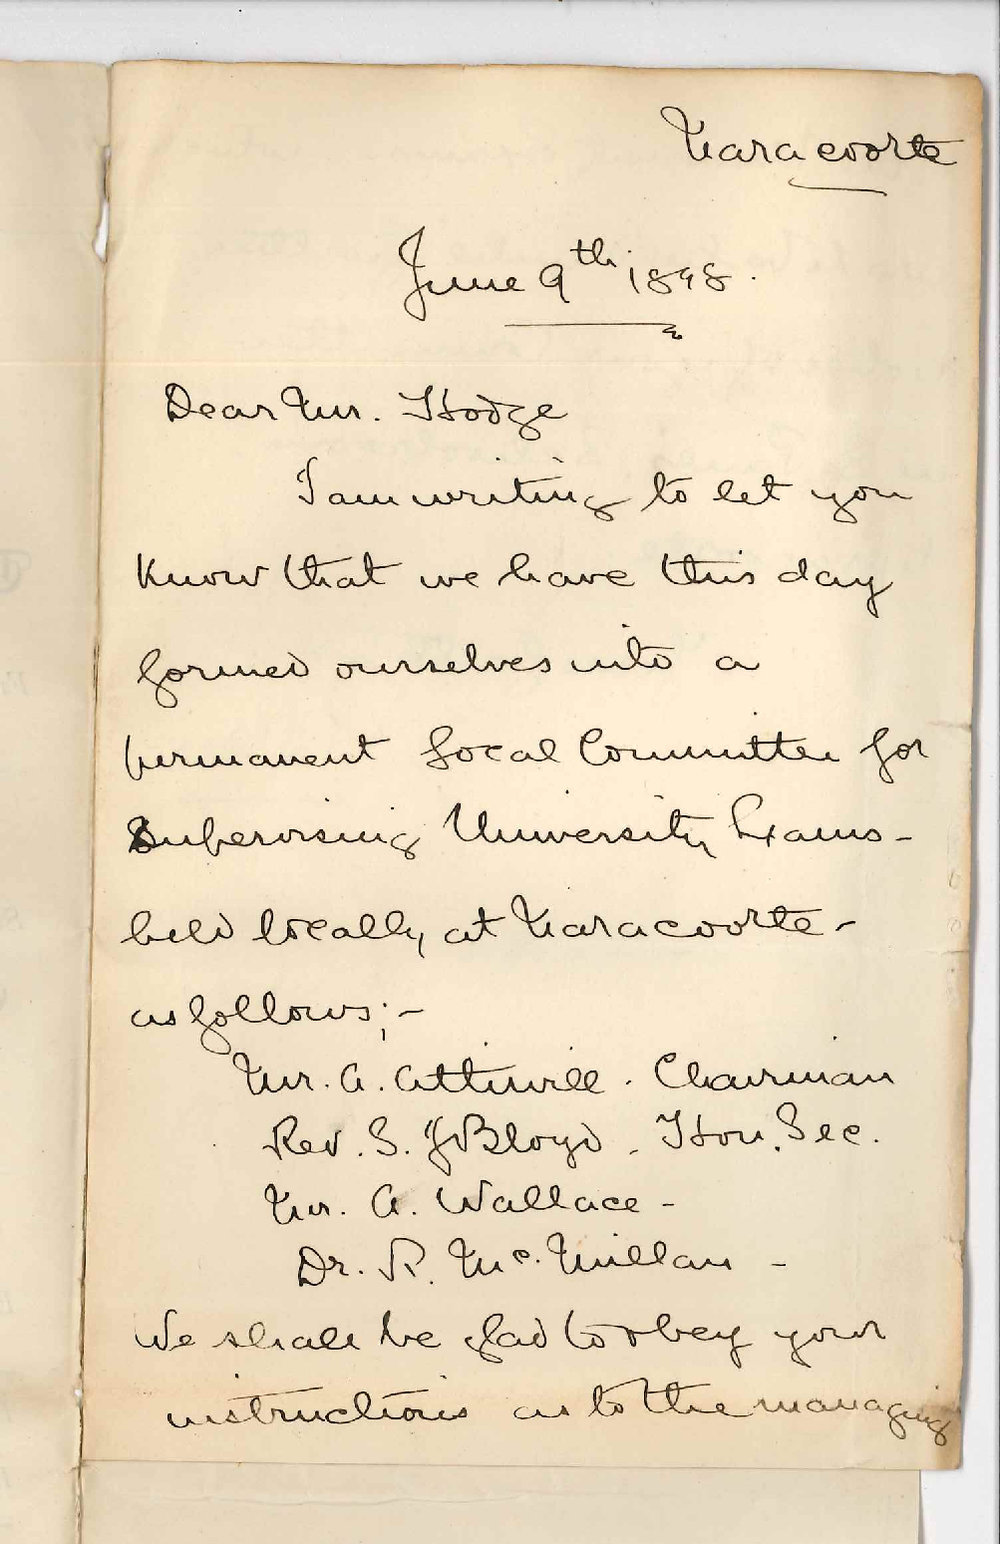 Naracoorte
June 9th 1898.
Dear Mr. Hodge
I am writing to let you
know that we have this day
formed ourselves into a
permanent Local Committee for
Supervising University Exams -
held locally, at Naracoorte -
as follows; -
Mr. A. Attiwill. Chairman
Rev. S. J Bloyd. Hon. Sec.
Mr. A. Wallace -
Dr. R. Mc. Millan -
We shall be glad to obey your
instructions as to the managing